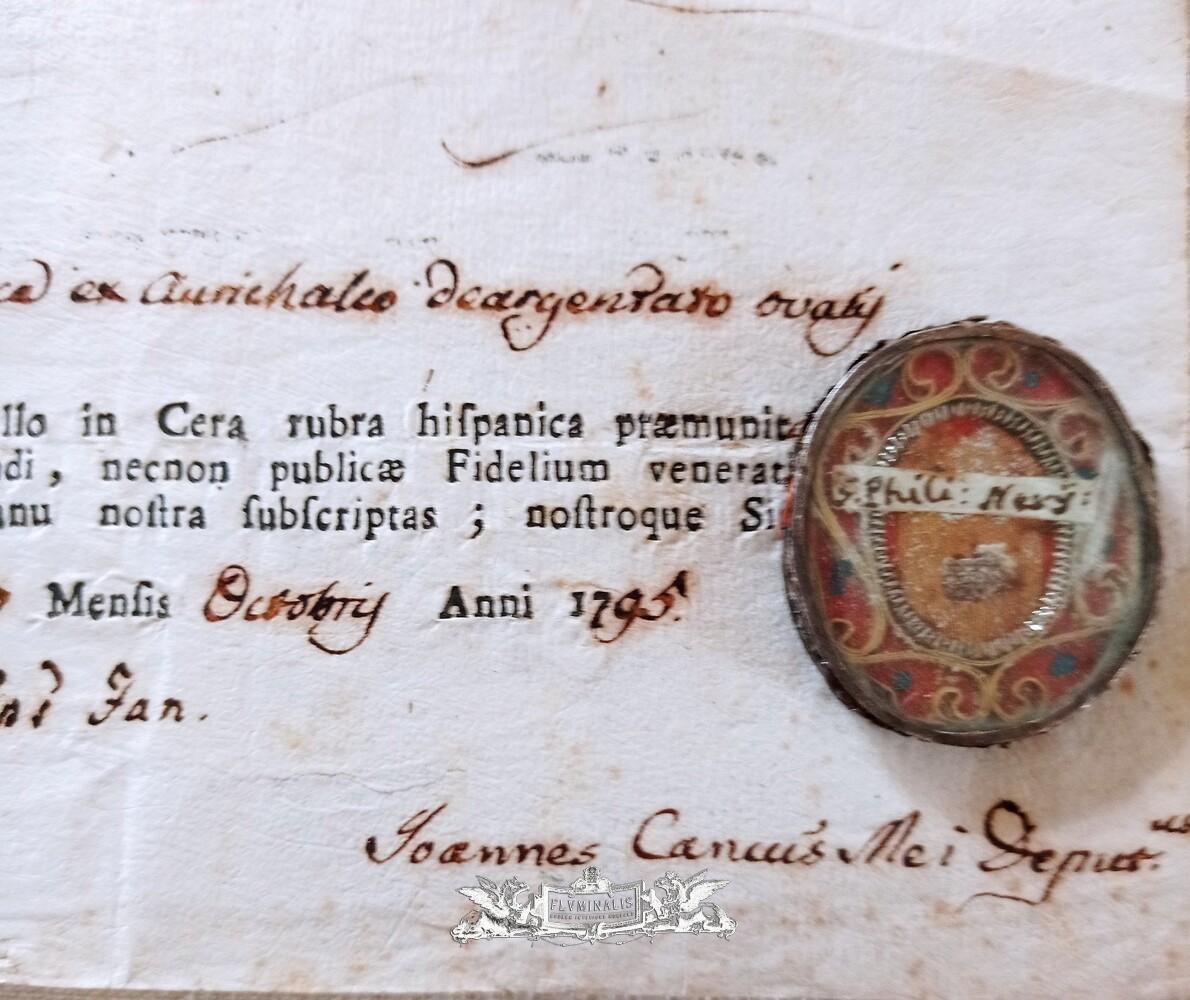 ex Aurichalco deargentato ovalij
llo in Cera rubra hiſpanica præmunit
di , necnon publicæ Fidelium venerat
nu noſtra ſubſcriptas ; noſtroque Si
S. Phili: Nerij:
Menſis Octobrij Anni 1795
Jan.
Joannes Cancus Mei Deput.us
FLVMINALIS